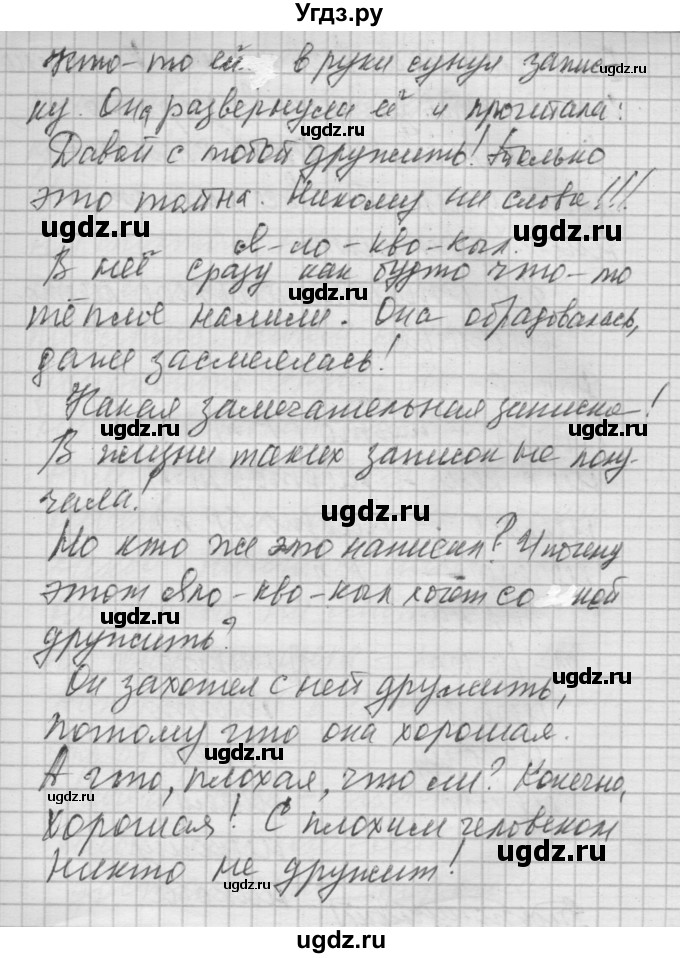 Угдз.ру
Кто-то ей в руки сунул запис-
ку. Она развернула её и прочитала:
Давай с тобой дружить! Только
это тайна. Никому ни слова!!!
Я-ло-кво-кыл.
В неё сразу как будто что-то
тёплое налили. Она обрадовалась,
даже засмеялась!
Какая замечательная записка!
В жизни таких записок не полу-
чала!
Но кто же это написал? И почему
этот Яло-кво-кыл хочет со мной
дружить?
Он захотел с ней дружить,
потому что она хорошая.
А что, плохая, что ли? Конечно,
хорошая! С плохим человеком
никто не дружит!
ugdz.ru